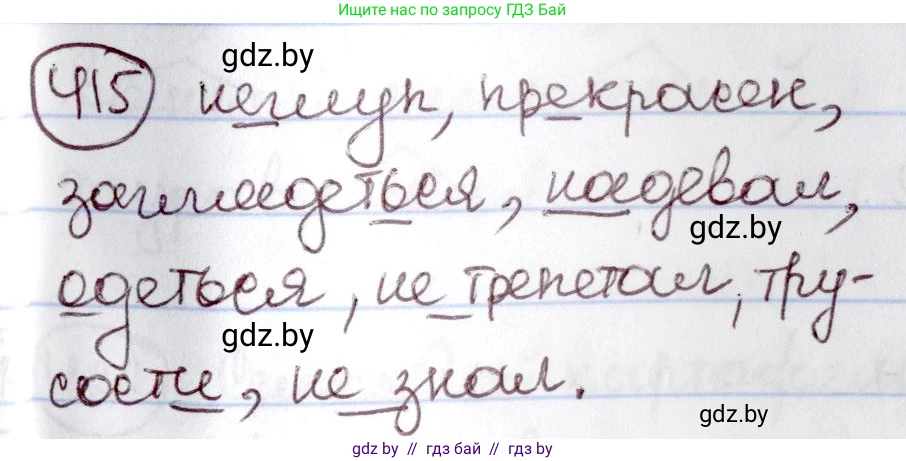 Ищите нас по запросу ГДЗ Бай
gdz.by
415 неглуп, прекрасен,
заглядеться, надевал,
gdz.by
одеться, не трепетал, тру-
gdz.by
сости, не знал.
gdz.by
gdz.by // гдз бай // гдз by